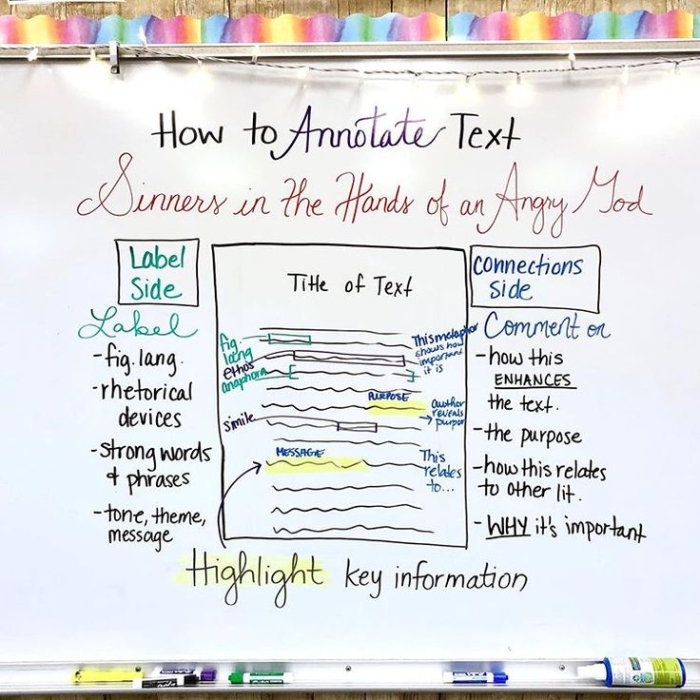 How to Annotate Text
Sinners in the Hands of an Angry God
Label
Side
Label
-fig. lang.
-rhetorical
devices
-strong words
& phrases
-tone, theme,
message
Title of Text
fig.
lang
ethos
anaphora
simile
This metaphor
shows how
important
it is
PURPOSE
author
reveals
purpose
MESSAGE
This
relates
to...
connections
side
Comment on
-how this
ENHANCES
the text.
-the purpose
-how this relates
to other lit.
-WHY it's important
Highlight key information